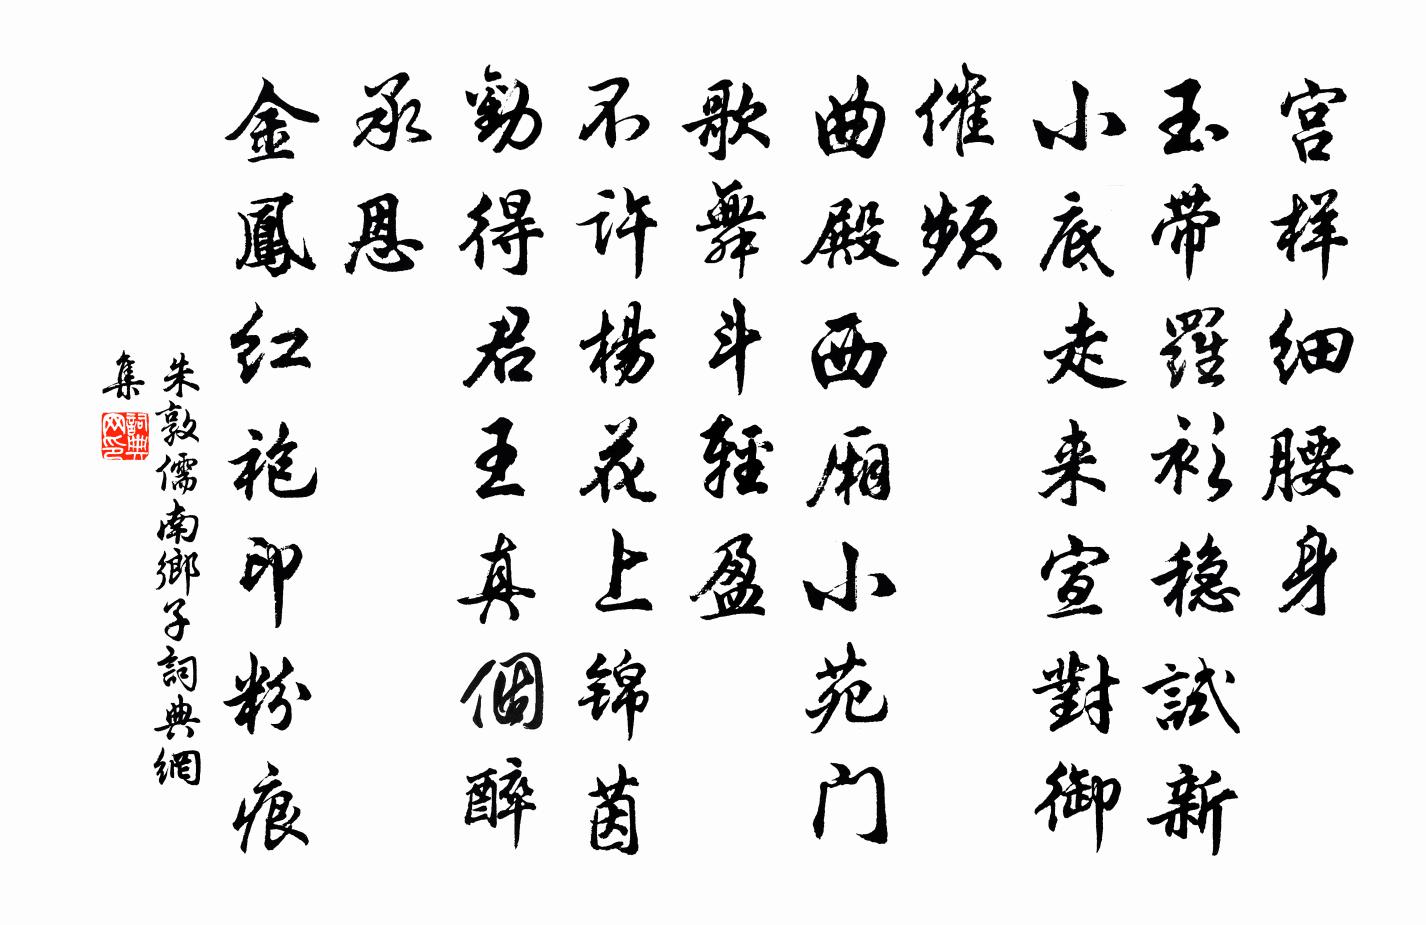 宫样细腰身
玉带羅衫穏試新
小底走来宣對御
催頻
曲殿西厢小苑门
歌舞斗輕盈
不许楊花上锦茵
勸得君王真個醉
承恩
金鳳红袍印粉痕
朱敦儒南鄉子詞典網
集
詞典
网印